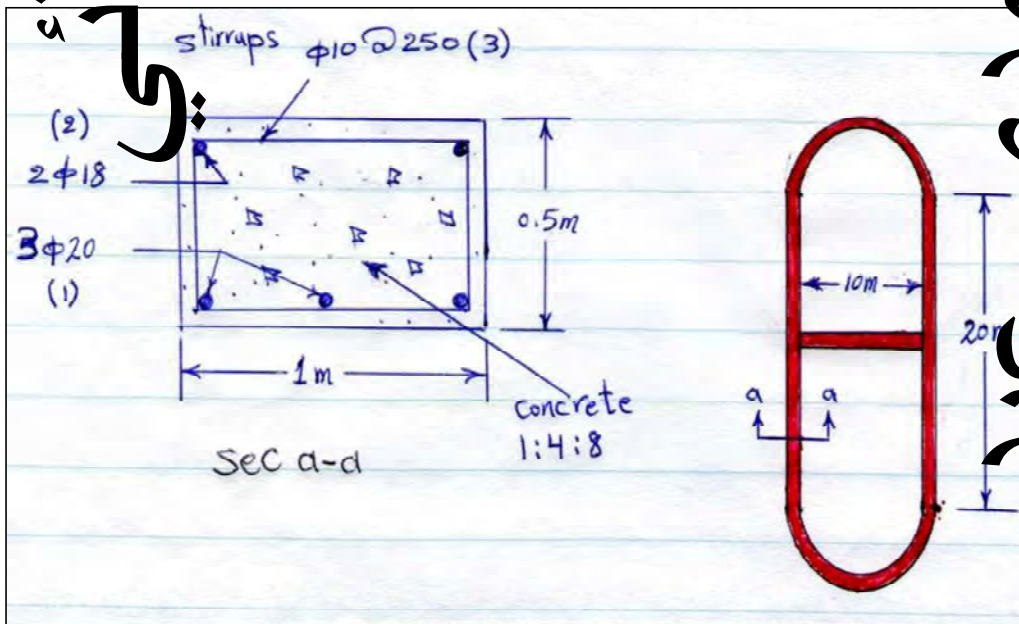 stirrups φ10@250(3)
(2)
2φ18
3φ20
(1)
0.5m
1m
concrete
1:4:8
Sec a-a
10m
a a